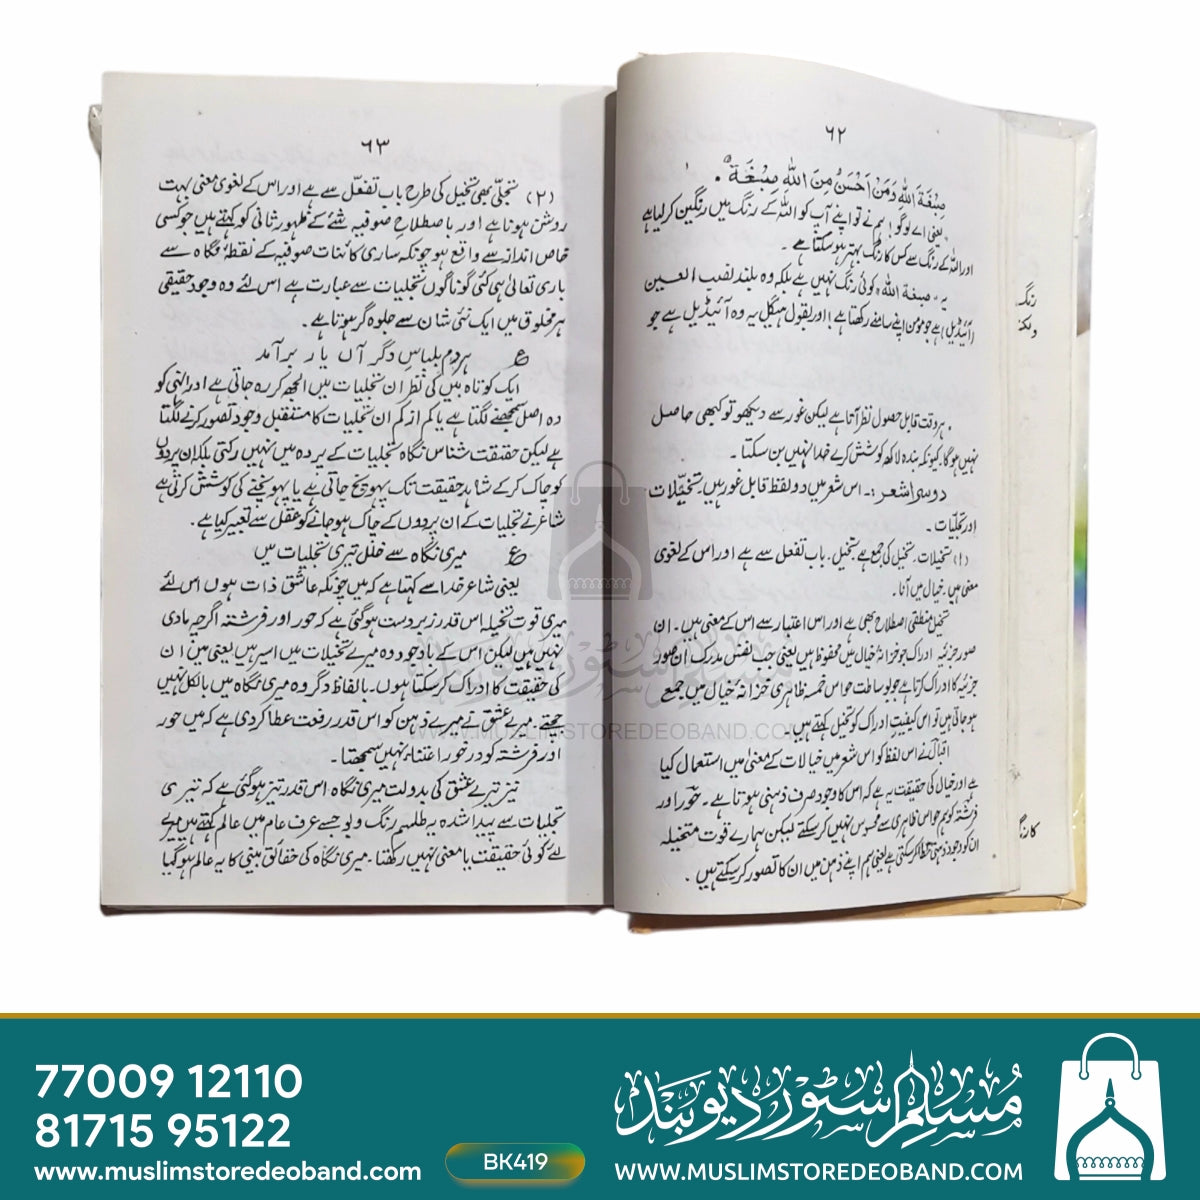 ۶۲
صِبْغَةَ اللهِ وَمَنْ اَحْسَنُ مِنَ اللهِ صِبْغَةً ۔
یعنی اے لوگو! ہم نے تو اپنے آپ کو اللہ کے رنگ میں رنگین کر لیا ہے
اور اللہ کے رنگ سے کس کا رنگ بہتر ہو سکتا ہے ۔
یہ "صبغۃ اللہ" کوئی رنگ نہیں ہے بلکہ وہ بلند نصب العین
(آئیڈیل) ہے جو مومن اپنے سامنے رکھتا ہے ؛ اور بقول ہیگل یہ وہ آئیڈیل ہے جو
ہر وقت قابل حصول نظر آتا ہے لیکن غور سے دیکھو تو کبھی حاصل
نہیں ہوگا۔ کیونکہ بندہ لاکھ کوشش کرے خدا نہیں بن سکتا ۔
دوسرا شعر :۔ اس شعر میں دو لفظ قابل غور ہیں تخیلات
اور تجلیات ۔
(۱) تخیلات۔ تخیل کی جمع ہے۔ تخیل۔ باب تفعل سے ہے اور اس کے لغوی
معنی ہیں۔ خیال میں آنا۔
تخیل منطقی اصطلاح بھی ہے اور اس اعتبار سے اس کے معنی ہیں۔ ان
صور جزئیہ ادراک جو خزانۂ خیال میں محفوظ ہیں یعنی جب نفس مدرک ان صور
جزئیہ کا ادراک کرتا ہے جو بوساطت حواس خمسہ ظاہری خزانۂ خیال میں جمع
ہو جاتی ہیں تو اس کیفیتِ ادراک کو تخیل کہتے ہیں۔
اقبال نے اس لفظ کو اس شعر میں خیالات کے معنی میں استعمال کیا
ہے اور خیال کی حقیقت یہ ہے کہ اس کا وجود صرف ذہنی ہوتا ہے ۔ حور اور
فرشتہ کو ہم حواس ظاہری سے محسوس نہیں کر سکتے لیکن ہمارے قوت متخیلہ
ان کو وجود ذہنی عطا کر سکتی ہے یعنی ہم اپنے ذہن میں ان کا تصور کر سکتے ہیں ۔
۶۳
(۲) تجلّی بھی تخیل کی طرح باب تفعّل سے ہے اور اس کے لغوی معنی بہت
روشن ہونا ہے اور باصطلاح صوفیہ شئے کے ظہور ثانی کو کہتے ہیں جو کسی
خاص انداز سے واقع ہو چونکہ ساری کائنات صوفیہ کے نقطۂ نگاہ سے
باری تعالیٰ ہی کی گوناگوں تجلیات سے عبارت ہے اس لئے وہ وجود حقیقی
ہر مخلوق میں ایک نئی شان سے جلوہ گر ہوتا ہے۔
ع ہردم بلباسِ دگر آں یار برآمد
ایک کوتاہ بیں کی نظر ان تجلیات میں الجھ کر رہ جاتی ہے اور انہی کو
وہ اصل سمجھنے لگتا ہے یا کم از کم ان تجلیات کا مستقل وجود تصور کرنے لگتا
ہے لیکن حقیقت شناس نگاہ تجلیات کے پردہ میں نہیں رکتی بلکہ ان پردوں
کو چاک کر کے شاہدِ حقیقت تک پہونچ جاتی ہے یا پہونچنے کی کوشش کرتی ہے
شاعر نے تجلیات کے ان پردوں کے چاک ہو جانے کو عقل سے تعبیر کیا ہے۔
ع میری نگاہ سے خلل تیری تجلیات میں
یعنی شاعر خدا سے کہتا ہے کہ میں چونکہ عاشق ذات ہوں اس لئے
میری قوت تخیلہ اس قدر زبردست ہو گئی ہے کہ حور اور فرشتہ اگرچہ مادی
نہیں ہیں لیکن اس کے باوجود وہ میرے تخیلات میں اسیر ہیں یعنی میں ان
کی حقیقت کا ادراک کر سکتا ہوں۔ بالفاظ دگر وہ میری نگاہ میں بالکل نہیں
جچتے۔ میرے عشق نے میرے ذہن کو اس قدر رفعت عطا کر دی ہے کہ میں حور
اور فرشتہ کو درخور اعتناء نہیں سمجھتا ۔
نیز تیرے عشق کی بدولت میری نگاہ اس قدر تیز ہو گئی ہے کہ تیری
تجلیات سے پیدا شدہ یہ طلسم رنگ و بو جسے عرف عام میں عالم کہتے ہیں میرے
لئے کوئی حقیقت یا معنی نہیں رکھتا ۔ میری نگاہ کی حقائق بینی کا یہ عالم ہو گیا
رنگ
کا رنگ
مسلم سٹور دیوبند
WWW.MUSLIMSTOREDEOBAND.COM
77009 12110
81715 95122
www.muslimstoredeoband.com
BK419
مسلم سٹور دیوبند
WWW.MUSLIMSTOREDEOBAND.COM